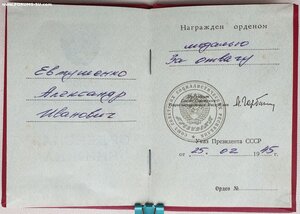 Евтушенко
Александр
Иванович
Награжден орденом
медалью
За отвагу
М. Горбачев
Указ Президента СССР
от 25. 02 19
Орден №